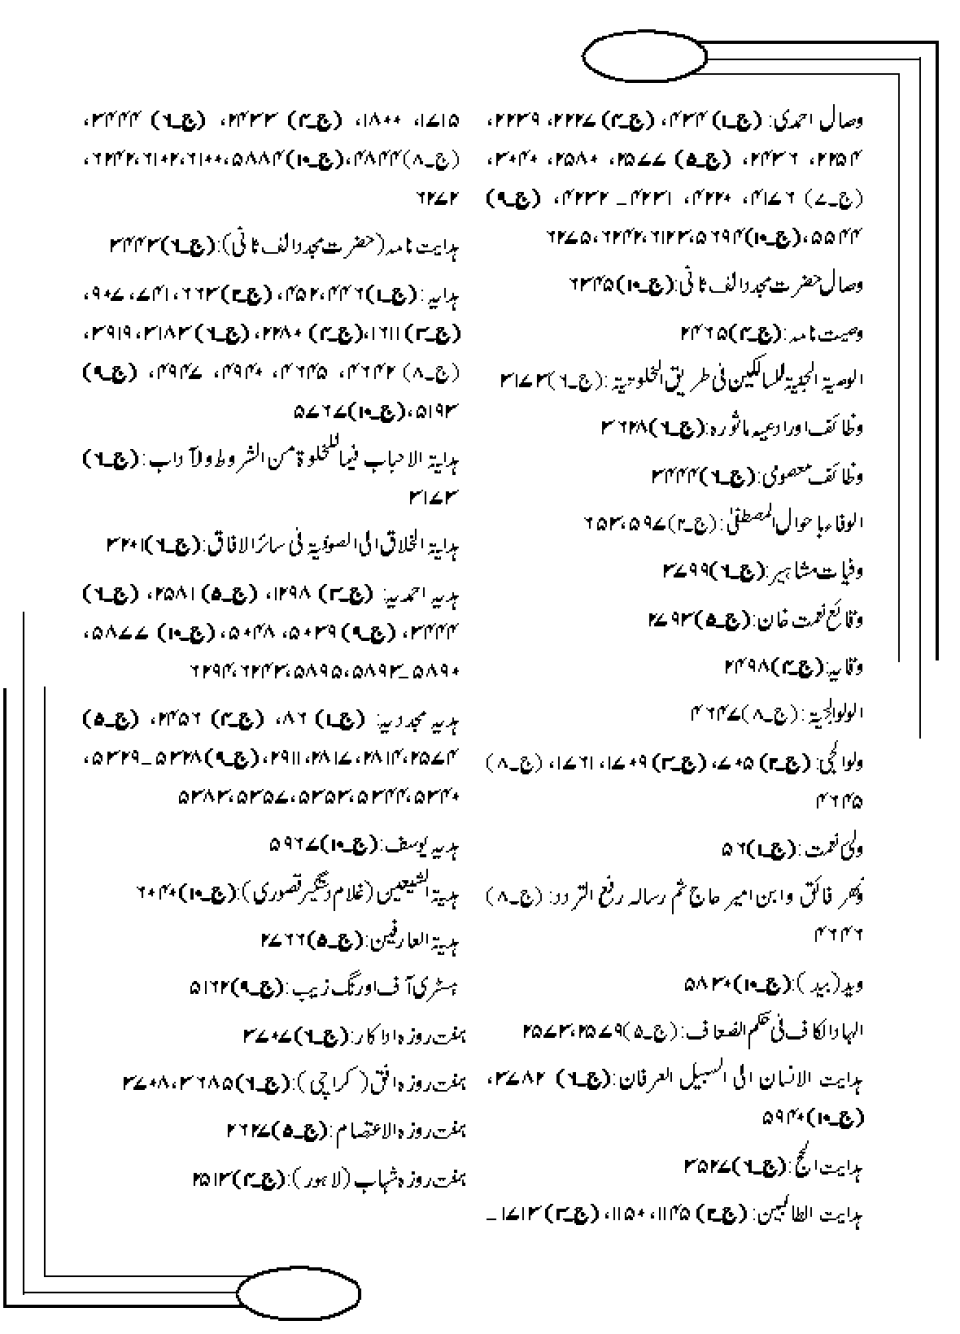 وصال احمدی: (ج۔۱) ۴۳۴، (ج۔۴) ۲۲۲۷، ۲۲۳۹،
۲۲۵۴، ۲۴۳۶، (ج۔۵) ۲۵۷۷، ۲۵۸۰، ۳۰۴۰،
(ج۔۷) ۴۱۷۶، ۴۲۲۰، ۴۲۳۱ـ ۴۲۳۲، (ج۔۹)
۵۵۴۴، (ج۔۱۰)۵۶۹۴، ۶۱۲۳، ۶۲۴۲، ۶۲۷۵
وصال حضرت مجدد الف ثانی: (ج۔۱۰)۶۳۴۵
وصیت نامہ: (ج۔۴)۲۴۶۵
الوصیۃ الجنیۃ للسالکین فی طریق الخلوتیۃ: (ج۔۶)۳۱۷۳
وظائف اور ادعیہ ماثورہ: (ج۔۶)۳۶۲۸
وظائف معصومی: (ج۔۶)۳۴۴۴
الوفاء باحوال المصطفیٰ: (ج۔۲)۵۹۷، ۶۵۳
وفیات مشاہیر: (ج۔۶)۳۷۹۹
وقائع نعمت خان: (ج۔۵)۲۷۹۳
وقایہ: (ج۔۴)۲۴۹۸
الولوالجیۃ: (ج۔۸)۴۶۴۷
ولوالجی: (ج۔۲) ۷۰۵، (ج۔۳) ۱۷۰۹، ۱۷۶۱، (ج۔۸)
۴۶۴۵
ولی نعمت: (ج۔۱)۵۶
وَنہر فائق وابن امیر حاج ثم رسالہ رفع التردد: (ج۔۸)
۴۶۴۶
وید (بید): (ج۔۱۰)۵۸۳۰
الہاد الکاف فی حکم الضعاف: (ج۔۵)۲۵۷۹، ۲۵۷۳
ہدایت الانسان الی السبیل العرفان: (ج۔۶) ۳۷۸۲،
(ج۔۱۰)۵۹۴۰
ہدایت الحج: (ج۔۶)۳۵۲۷
ہدایت الطالبین: (ج۔۲) ۱۱۴۵، ۱۱۵۰، (ج۔۳) ۱۷۱۳ـ
۱۷۱۵، ۱۸۰۰، (ج۔۴) ۲۴۳۳، (ج۔۶) ۳۴۴۴،
(ج۔۸)۴۸۴۴، (ج۔۱۰)۵۸۸۴، ۶۱۰۰، ۶۱۰۲، ۶۲۴۲،
۶۲۷۲
ہدایت نامہ (حضرت مجدد الف ثانی): (ج۔۶)۳۴۴۳
ہدایہ: (ج۔۱)۴۴۶، ۴۵۲، (ج۔۲)۶۶۳، ۷۴۱، ۹۰۷،
(ج۔۳)۱۶۱۱، (ج۔۴) ۲۲۸۰، (ج۔۶)۳۱۸۳، ۳۹۱۹،
(ج۔۸)۴۶۴۲، ۴۶۴۵، ۴۹۴۰، ۴۹۴۷، (ج۔۹)
۵۱۹۳، (ج۔۱۰)۵۷۶۷
ہدایۃ الاحباب فیما للخلوۃ من الشروط ولآداب: (ج۔۶)
۳۱۷۳
ہدایۃ الخلاق الی الصوفیۃ فی سائر الافاق: (ج۔۶)۳۲۰۱
ہدیہ احمدیہ: (ج۔۳) ۱۲۹۸، (ج۔۵) ۲۵۸۱، (ج۔۶)
۳۴۴۴، (ج۔۹) ۵۰۳۹، ۵۰۴۸، (ج۔۱۰) ۵۸۷۷،
۵۸۹۰ـ۵۸۹۳، ۵۸۹۵، ۶۲۴۳، ۶۲۹۴
ہدیہ مجددیہ: (ج۔۱) ۸۶، (ج۔۴) ۲۴۵۶، (ج۔۵)
۲۵۷۴، ۲۸۱۴، ۲۸۱۷، ۲۹۱۱، (ج۔۹)۵۳۲۸ـ۵۳۲۹،
۵۳۴۰، ۵۳۴۴، ۵۳۵۳، ۵۳۵۷، ۵۳۸۳
ہدیہ یوسف: (ج۔۱۰)۵۹۶۷
ہدیۃ الشیعین (غلام دستگیر قصوری): (ج۔۱۰)۶۰۴۰
ہدیۃ العارفین: (ج۔۵)۲۷۶۶
ہسٹری آف اورنگ زیب: (ج۔۹)۵۱۶۲
ہفت روزہ اداکار: (ج۔۶)۳۷۰۷
ہفت روزہ افق (کراچی): (ج۔۶)۳۶۸۵، ۳۷۰۸
ہفت روزہ الاعتصام: (ج۔۵)۲۶۲۷
ہفت روزہ شہاب (لاہور): (ج۔۴)۲۵۱۳